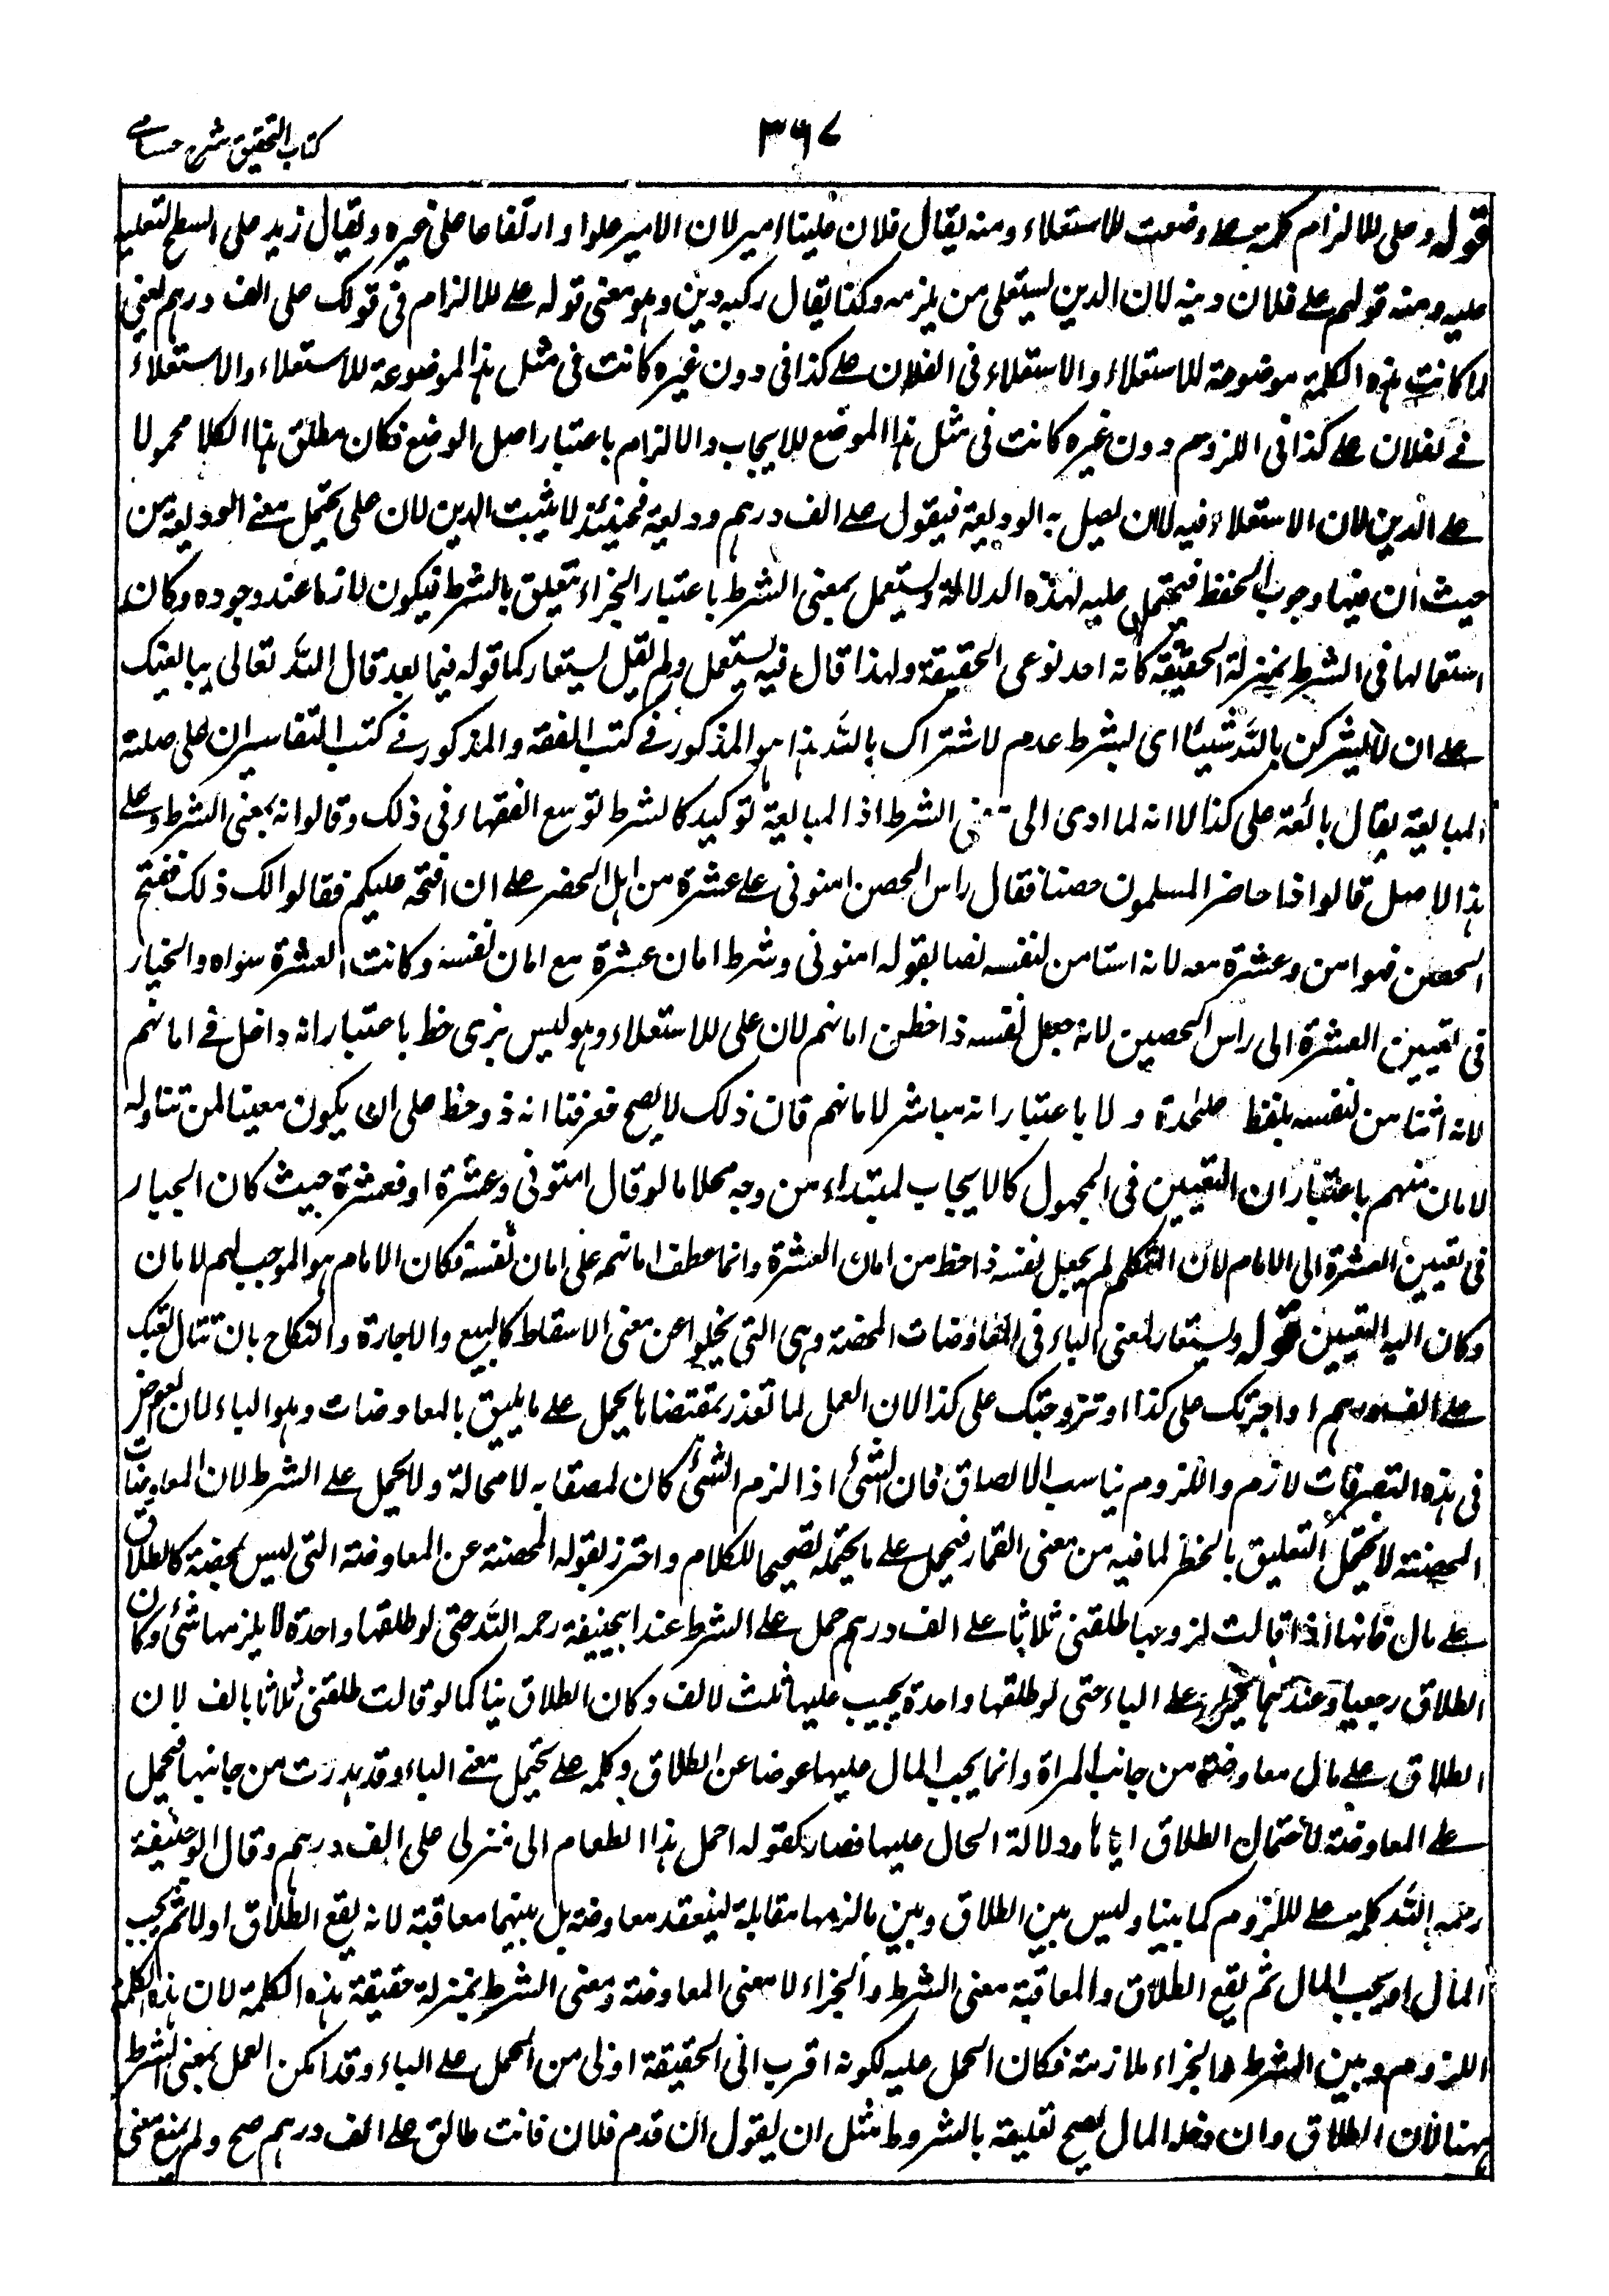 كتاب التحقيق شرح حسامى
٣٦٧
قوله وعلى للالزام كلمة على وضعت للاستعلاء ومنه يقال فلان علينا امير لان الامير علوا وارتفاعا على غيره ويقال زيد على السطح لتعليه
عليه ومنه قولهم على فلان دينه لان الدين يستعلى من يلزمه وكذا يقال ركبه دين وهو معنى قوله على للالزام فى قولك على الف درهم يعنى
لما كانت هذه الكلمة موضوعة للاستعلاء والاستعلاء فى الفلان على كذا فى دون غيره كانت فى مثل هذا الموضوعة للاستعلاء والاستعلاء
فى لفلان على كذا فى اللزوم دون غيره كانت فى مثل هذا الموضع للايجاب والالزام باعتبار اصل الوضع فكان مطلق هذا الكلام محمولا
على الدين لان الاستعلاء فيه لان يصل به الوديعة فيقول على الف درهم وديعة فحينئذ لا يثبت الدين لان على يحتمل معنى الوديعة من
حيث ان فيها وجوب الحفظ فيحتمل عليه لهذه الدلالة ويستعمل بمعنى الشرط باعتبار الجزاء يتعلق بالشرط فيكون لازما عند وجوده وكان
استعمالها فى الشرط بمنزلة الحقيقة كانه احد نوعى الحقيقة ولهذا قال فيه يستعمل ولم يقل يستعار كما قوله فيما بعد قال الله تعالى يبايعنك
على ان لا يشركن بالله شيئا اى بشرط عدم الاشتراك بالله هذا هو المذكور فى كتب الفقه والمذكور فى كتب التفاسير ان على صلته
المبايعة يقال بائعة على كذا الا انه لما ادى الى معنى الشرط اذ المبايعة توكيد كالشرط توسع الفقهاء فى ذلك وقالوا انه بمعنى الشرط وعلى
هذا الاصل قالوا اذا حاضر المسلمون حصنا فقال راس الحصن امنونى على عشرة من اهل الحضر على ان افتحه عليكم فقالوا لك ذلك ففتح
الحصن فهو امن وعشرة معه لانه استامن لنفسه نصا بقوله امنونى وشرط امان عشرة مع امان نفسه وكانت العشرة سواه والخيار
فى تعيين العشرة الى راس الحصين لانه جعل نفسه ذا حظ من امانهم لان على للاستعلاء وهو ليس بزى حظ باعتبار انه داخل فى امانهم
لانه اثنا من لنفسه بلفظ علحدة ولا باعتبار انه مباشر لامانهم فان ذلك لا يصح فعرفنا انه ذو حظ على ان يكون معينا لمن تناوله
لامان منهم باعتبار ان التعيين فى المجهول كالايجاب لمبتداء من وجه محلا ما لو قال امنونى وعشرة او فعشرة حيث كان الخيار
فى تعيين العشرة الى الامام لان المتكلم لم يجعل نفسه ذا حظ من امان العشرة وانما عطف امانهم على امان نفسه فكان الامام هو الموجب لهم لامان
وكان اليه التعيين قوله ويستعار لمعنى الباء فى المعاوضات المحضة وهى التى يخلوا عن معنى الاسقاط كالبيع والاجارة والنكاح بان تتال بعتك
على الف درهم او اجرتك على كذا او تزوجتك على كذا لان العمل لما تعذر بمقتضاها يحمل على ما يليق بالمعاوضات وهو الباء لان العوض
فى هذه التصرفات لازم واللزوم يناسب الالصاق فان الشئ اذا لزم الشئ كان لمصقا به لا محالة ولا يحمل على الشرط لان المعاوضات
المحضة لا يحتمل التعليق بالخطر لما فيه من معنى القمار فيحمل على ما يحتمله تصحيحا للكلام واحترز بقوله المحضة عن المعاوضة التى ليس بمحضة كالطلاق
على مال فانها اذا قالت لزوجها طلقنى ثلاثا على الف درهم حمل على الشرط عند ابيحنيفة رحمه الله حتى لو طلقها واحدة لا يلزمها شئ وكان
الطلاق رجعيا وعندهما يحمل على الباء حتى لو طلقها واحدة يجب عليها ثلث لالف وكان الطلاق بينا كما لو قالت طلقنى ثلاثا بالف لان
الطلاق على مال معاوضة من جانب المراة وانما يجب المال عليها عوضا عن الطلاق وكلمه على يحتمل معنى الباء وقد بدرت من جانبها فيحمل
على المعاوضة لاحتمال الطلاق اياها ودلالة الحال عليها فصار كقوله احمل هذا الطعام الى منزلى على الف درهم وقال ابو حنيفة
رحمه الله كلمه على للزوم كما بينا وليس بين الطلاق وبين ما لزمها مقابلة لينعقد معاوضة بل بينهما معاقبة لانه يقع الطلاق اولا ثم يجب
المال او يجب المال ثم يقع الطلاق والمعاقبة معنى الشرط والجزاء لا معنى المعاوضة ومعنى الشرط بمنزلة حقيقة هذه الكلمة لان هذه الكلمة
اللزوم وبين الشرط والجزاء ملازمة فكان الحمل عليه لكونه اقرب الى الحقيقة اولى من الحمل على الباء وقد امكن العمل بمعنى الشرط
ههنا لان الطلاق وان دخله المال يصح تعليقه بالشروط مثل ان يقول ان قدم فلان فانت طالق على الف درهم صح ولم يمنع معنى